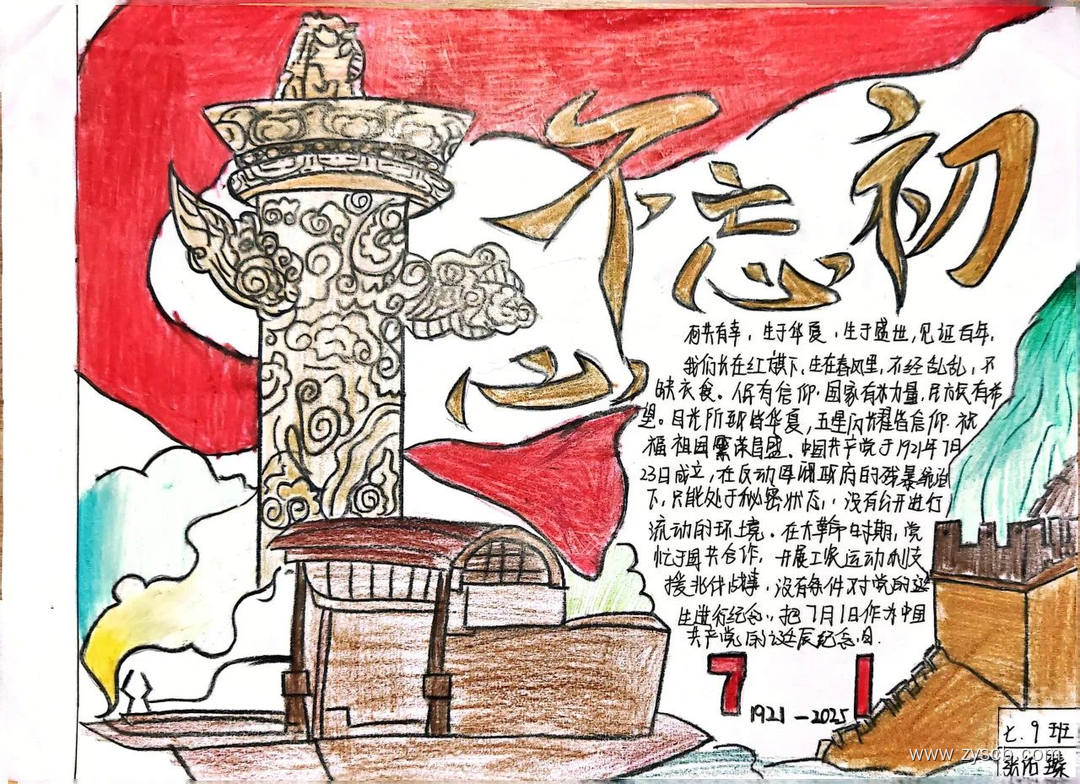 不忘初心
何其有幸，生于华夏，生于盛世，见证百年，
我们长在红旗下，生在春风里，不经乱乱，不
缺衣食。但有信仰，国家有力量，民族有希
望。目光所至皆华夏，五星闪耀皆信仰，祝
福祖国繁荣昌盛。中国共产党于1921年7月
23日成立，在反动政府的残暴统治
下，只能处于秘密状态，没有公开进行
流动的环境。在大革命时期，党
忙于国共合作，开展工农运动和支
援北伐战争，没有条件对党的诞
生进行纪念，把7月1日作为中国
共产党的诞辰纪念日.
7 1
1921-2025
七.9班
www.zyscb.com